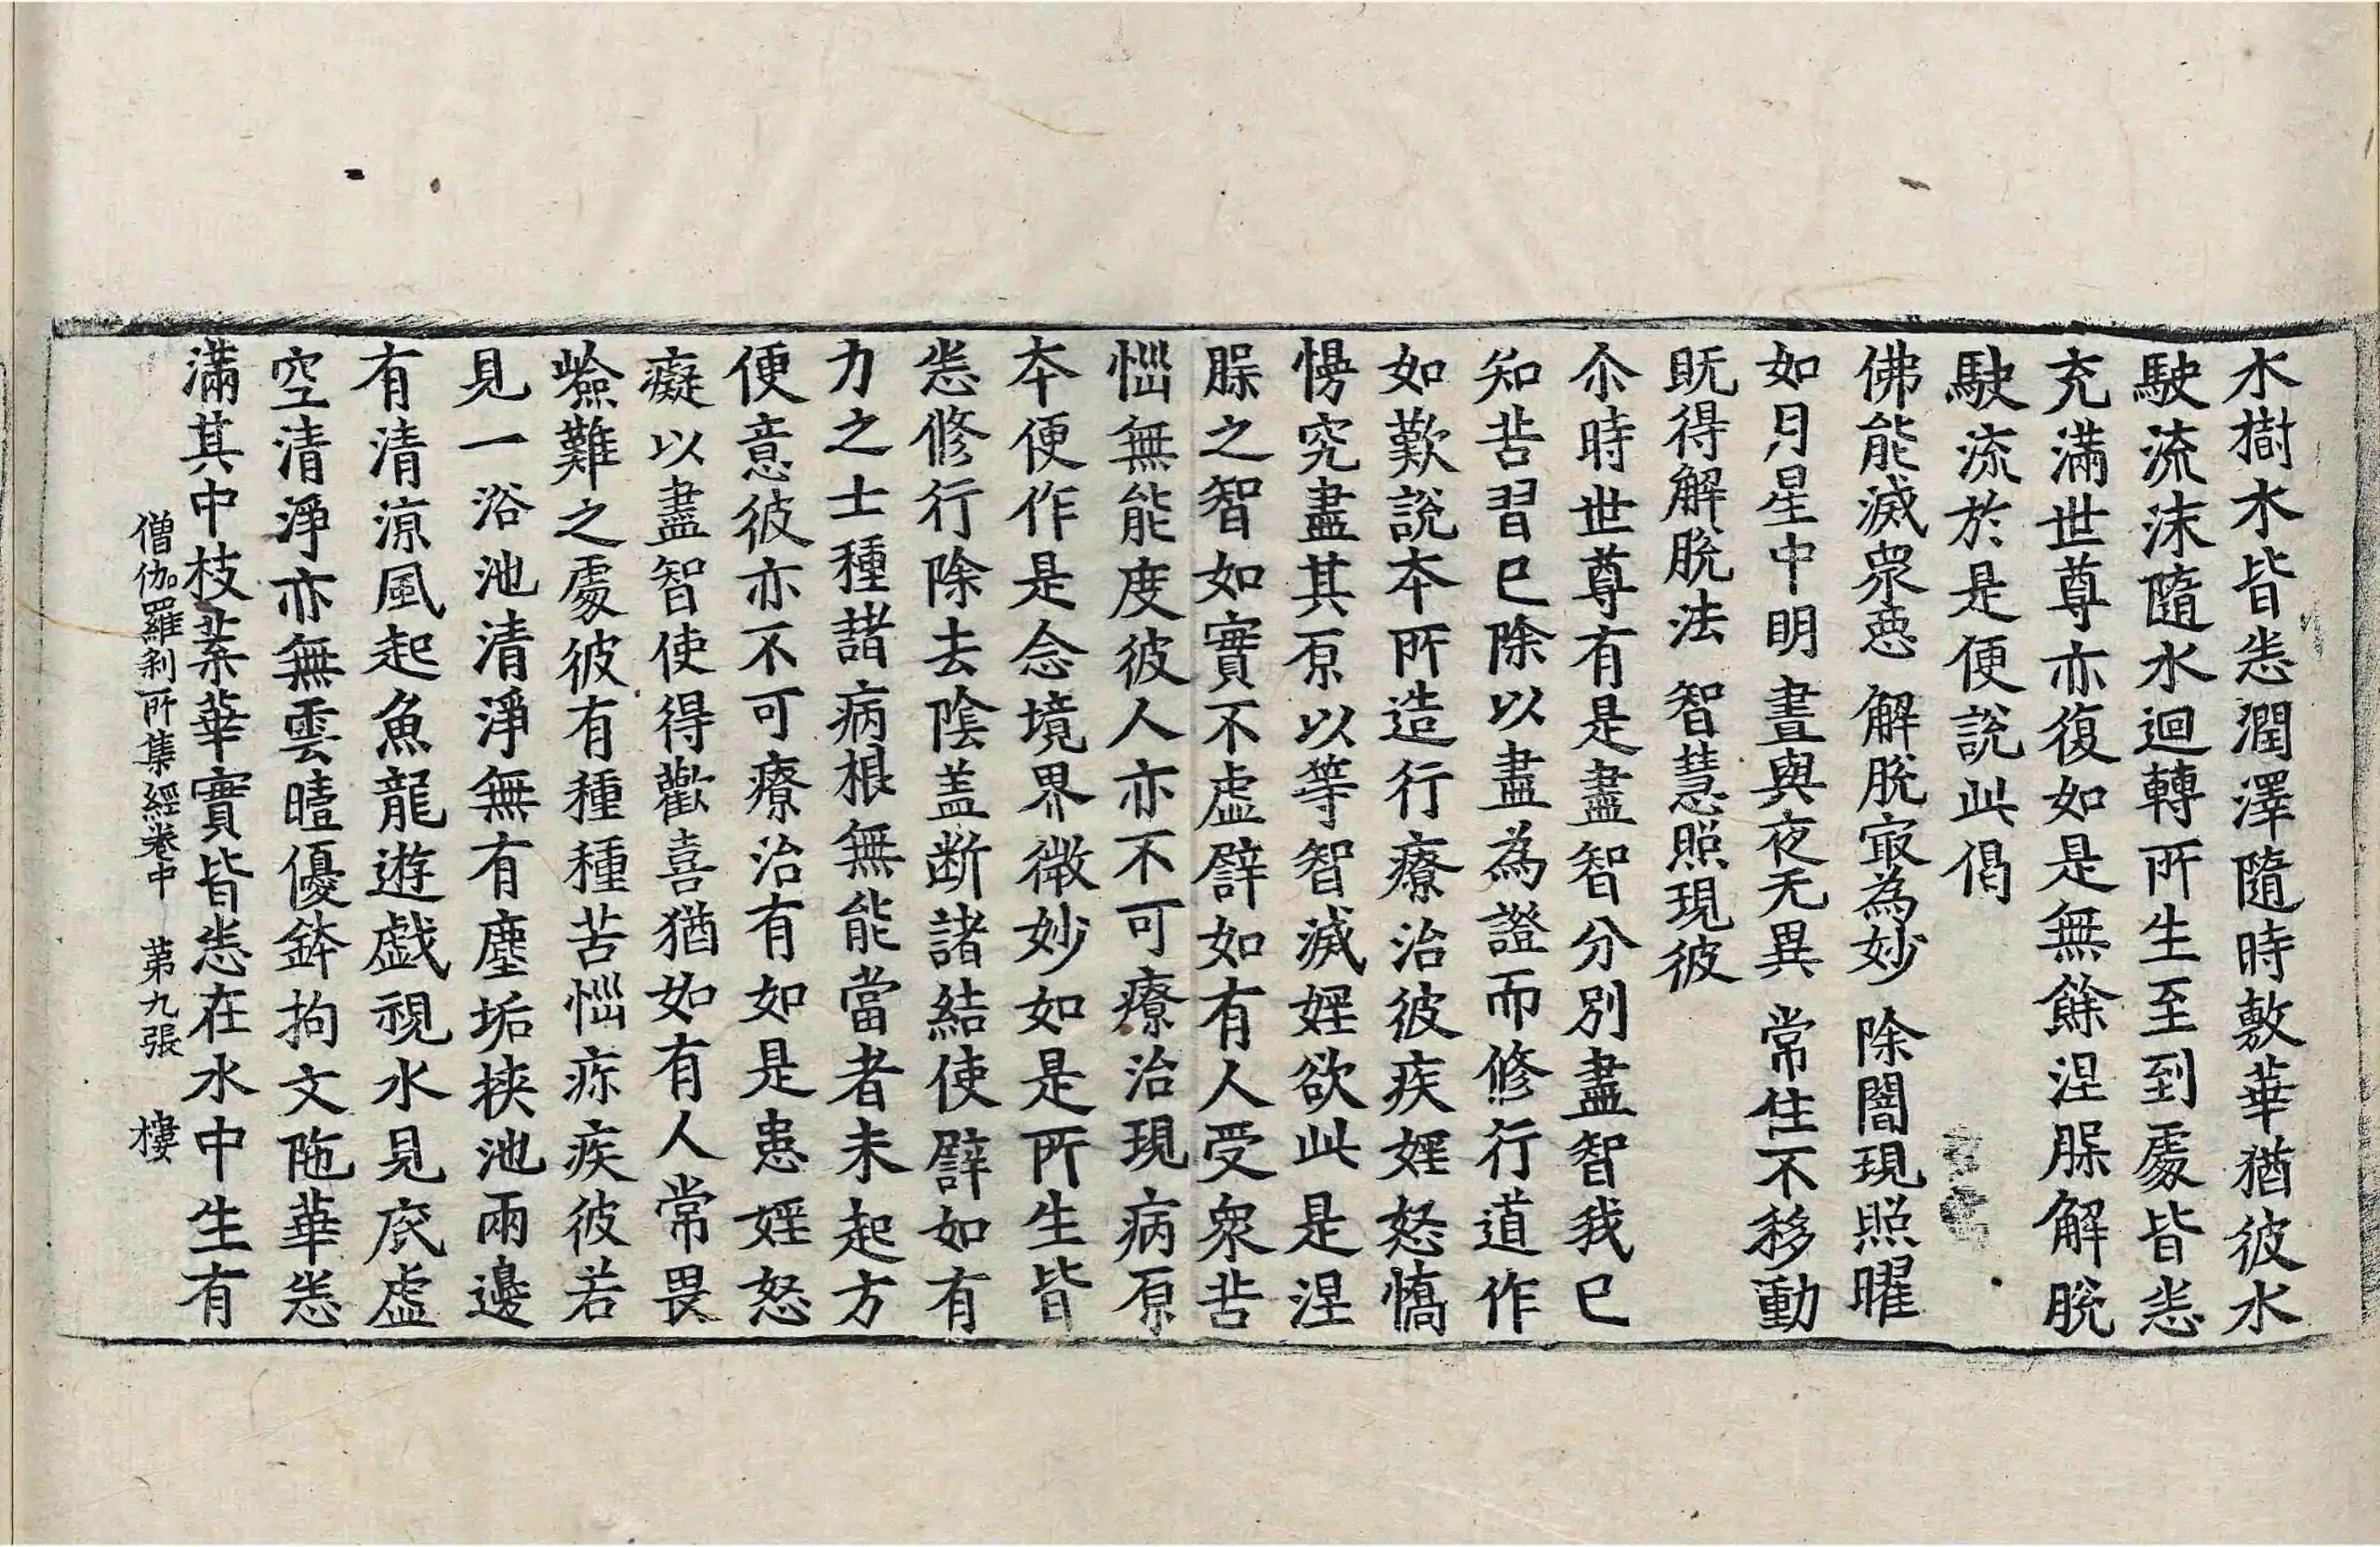 水樹水皆悉潤澤隨時敷華猶彼水
駛流沫隨水迴轉所生至到處皆悉
充滿世尊亦復如是無餘涅槃解脫
駛流於是便說此偈
佛能滅衆惡 解脫寂為妙 除闇現照曜
如月星中明 晝與夜无異 常住不移動
旣得解脫法 智慧照現彼
尒時世尊有是盡智分別盡智我已
知苦習已除以盡為證而修行道作
如歎說本所造行療治彼疾婬怒憍
慢究盡其原以等智滅婬欲此是涅
槃之智如實不虛譬如有人受衆苦
惱無能度彼人亦不可療治現病原
本便作是念境界微妙如是所生皆
悉修行除去陰盖断諸結使譬如有
力之士種諸病根無能當者未起方
便意彼亦不可療治有如是患婬怒
癡以盡智使得歡喜猶如有人常畏
嶮難之處彼有種種苦惱疹疾彼若
見一浴池清淨無有塵垢挾池兩邊
有清涼風起魚龍遊戱視水見底虛
空清淨亦無雲曀優鉢拘文陁華悉
滿其中枝葉華實皆悉在水中生有
僧伽羅剎所集經卷中 苐九張 樓